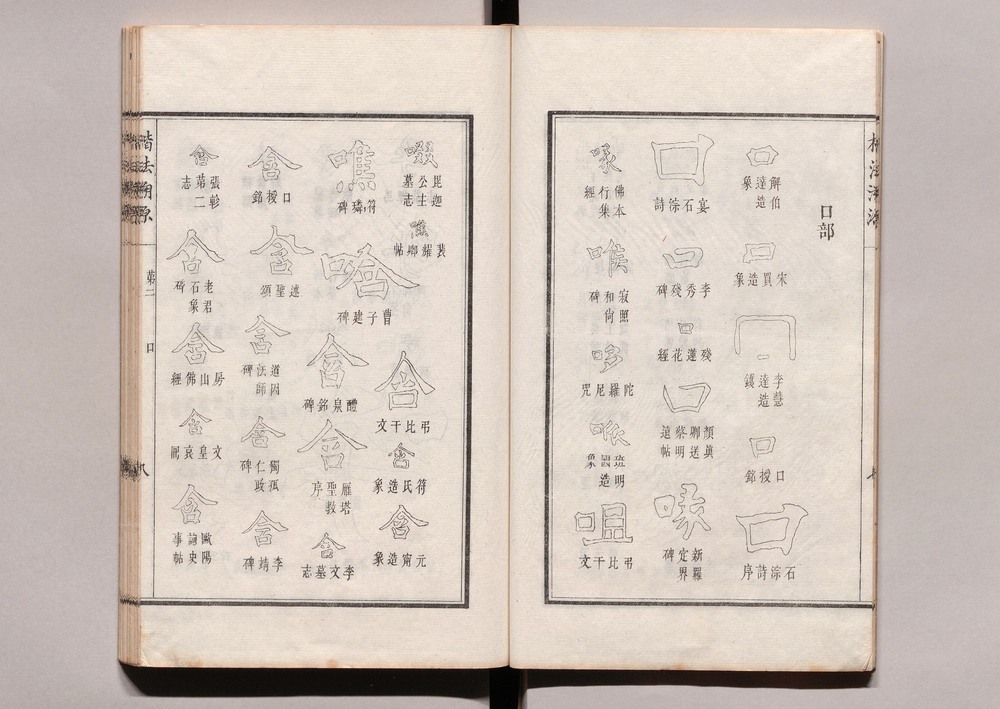 口部
口
解伯達造象
口
宋買造象
口
李慧達造
口
口授銘
口
石淙詩序
口
宴石淙詩
口
李秀殘碑
口
殘蓮花經
口
顏眞卿送蔡明遠帖
喙
新羅定界碑
喙
佛本行集經
喉
寂照和尙碑
哆
陀羅尼咒
班明造象
咀
弔比干文
啜
毘迦公主墓志
噍
裴耀卿帖
噍
符璘碑
唅
曹子建碑
含
弔比干文
含
符氏造象
含
元甯造象
含
醴泉銘碑
含
雁塔聖教序
含
李文墓志
含
口授銘
含
述聖頌
含
道因法師碑
含
獨孤仁政碑
含
李靖碑
含
張彰第二志
含
老君石象碑
含
房山佛經
含
文皇哀冊
含
歐陽詢史事帖
楷法溯源
第二
口
八